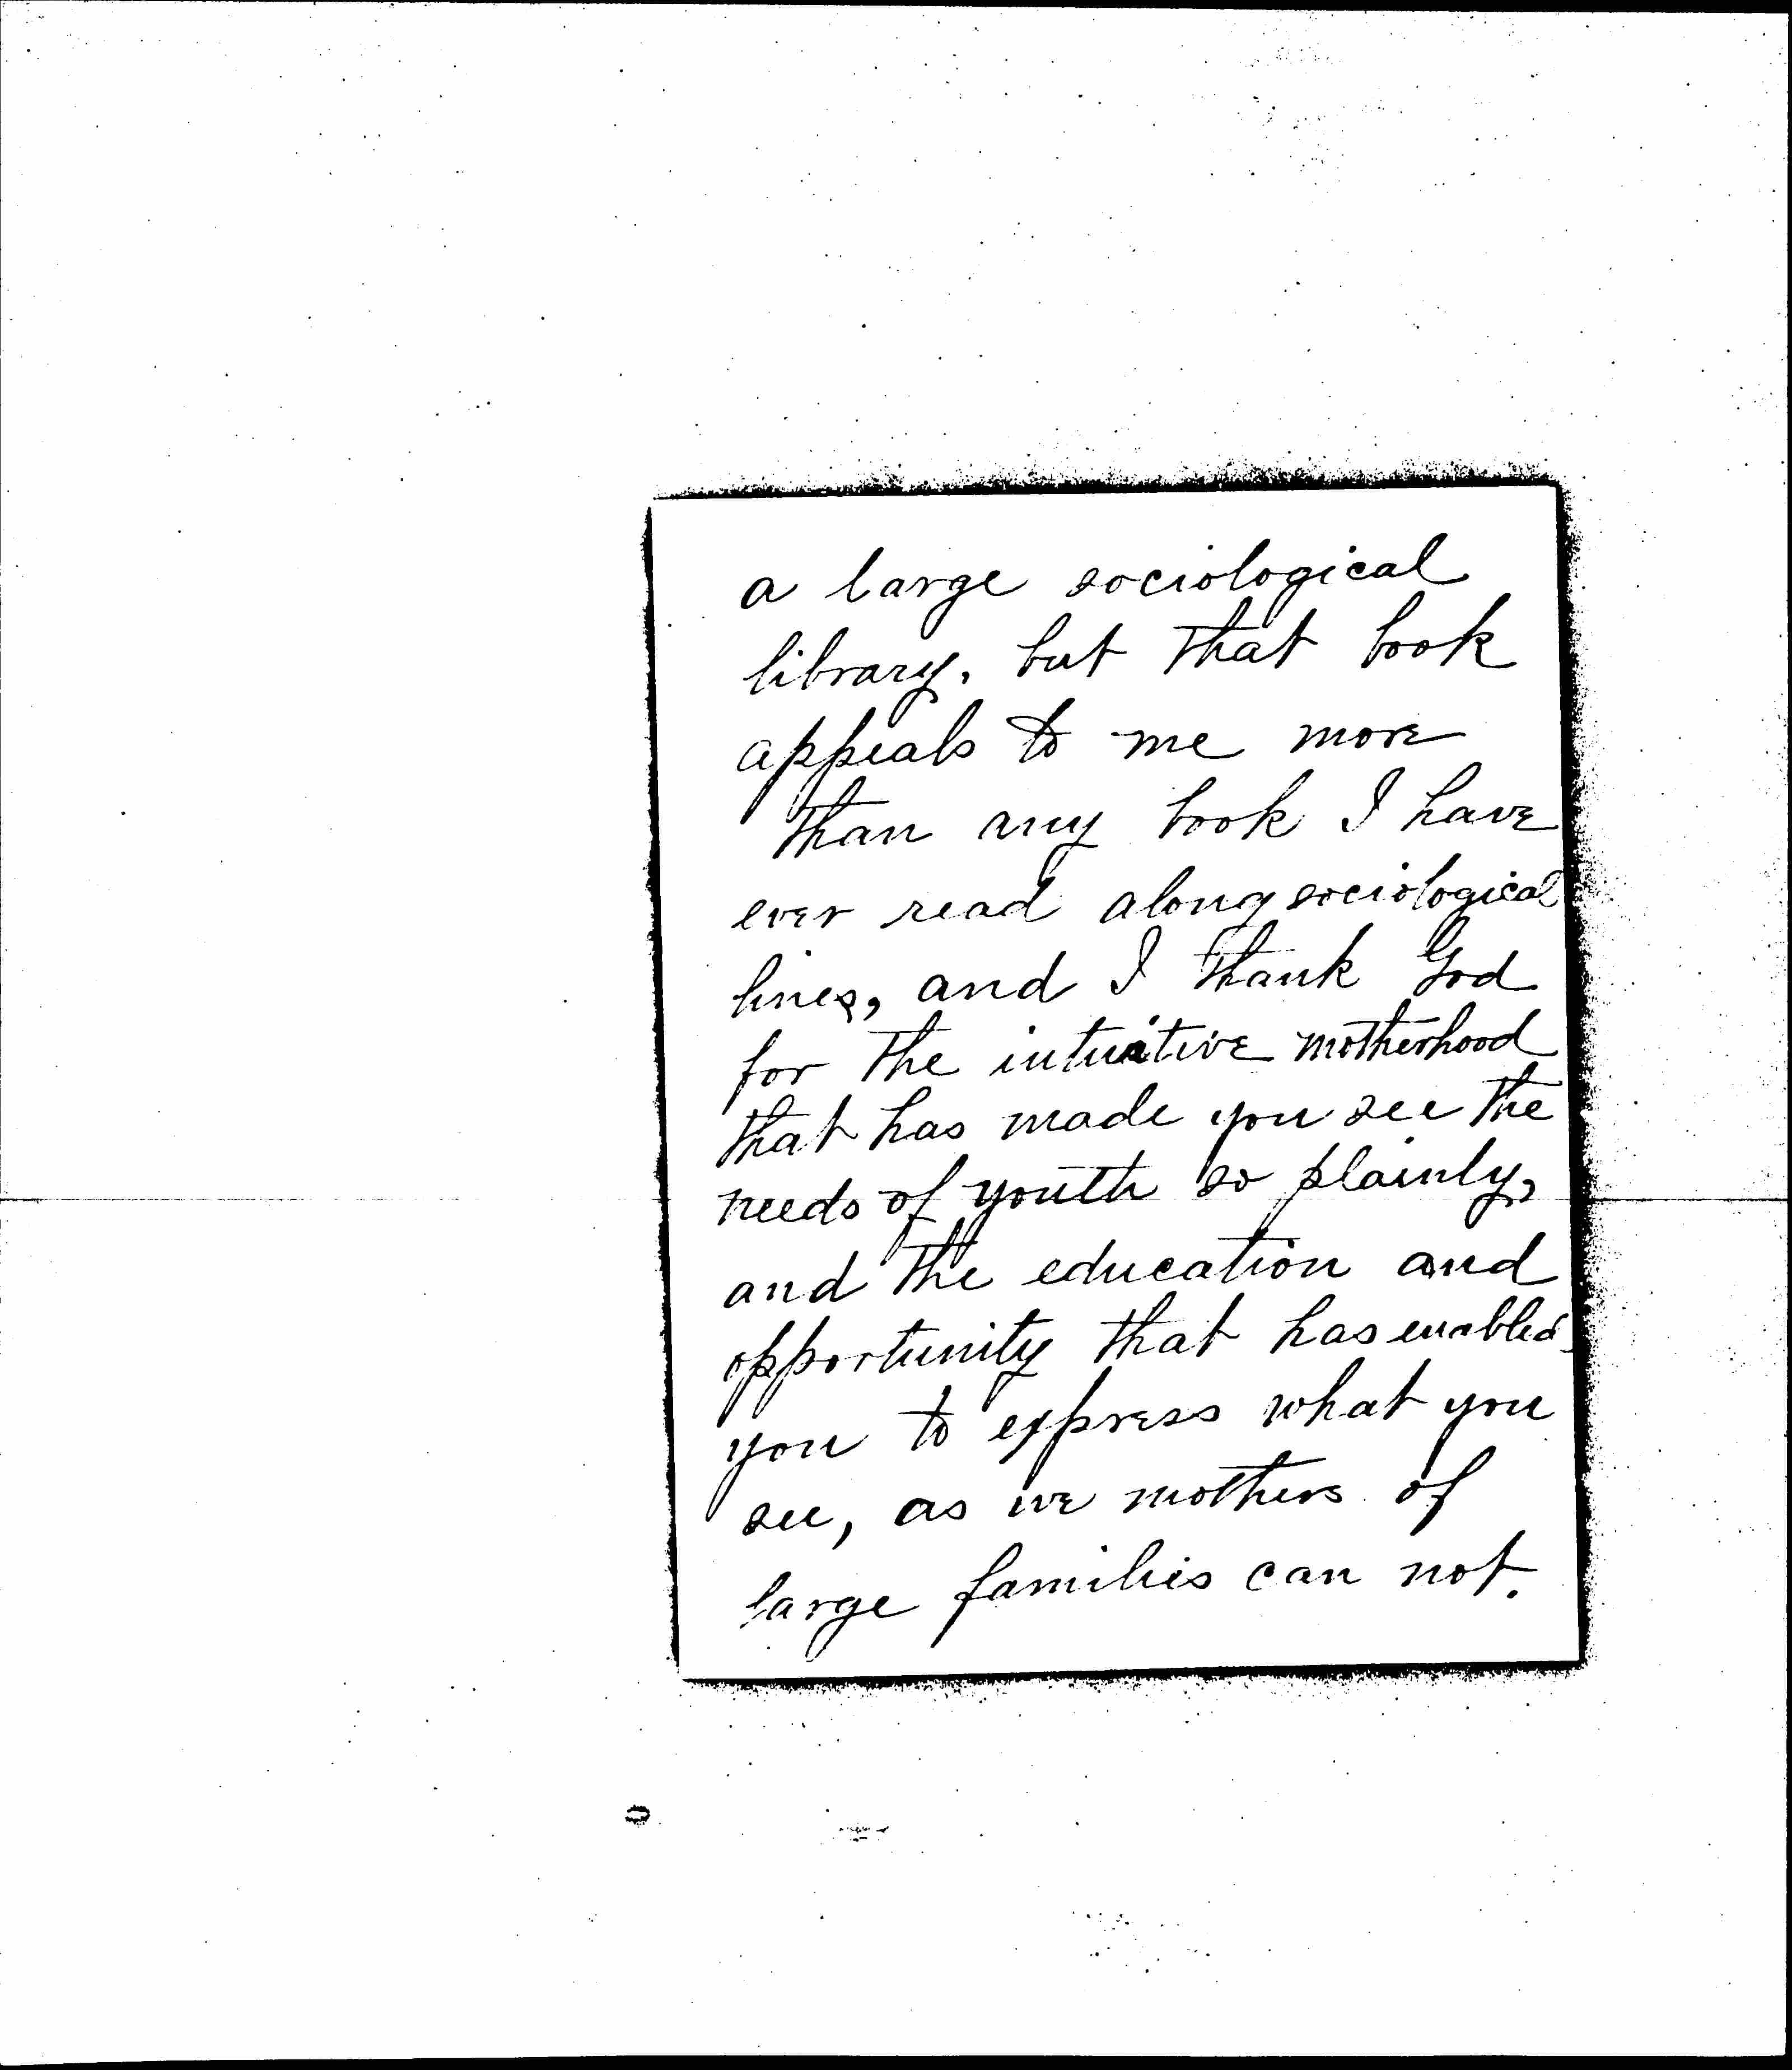 a large sociological
library, but that book
appeals to me more
than any book I have
ever read along sociological
lines, and I thank God
for the intuitive motherhood
that has made you see the
needs of youth so plainly,
and the education and
opportunity that has enabled
you to express what you
see, as we mothers of
large families can not.